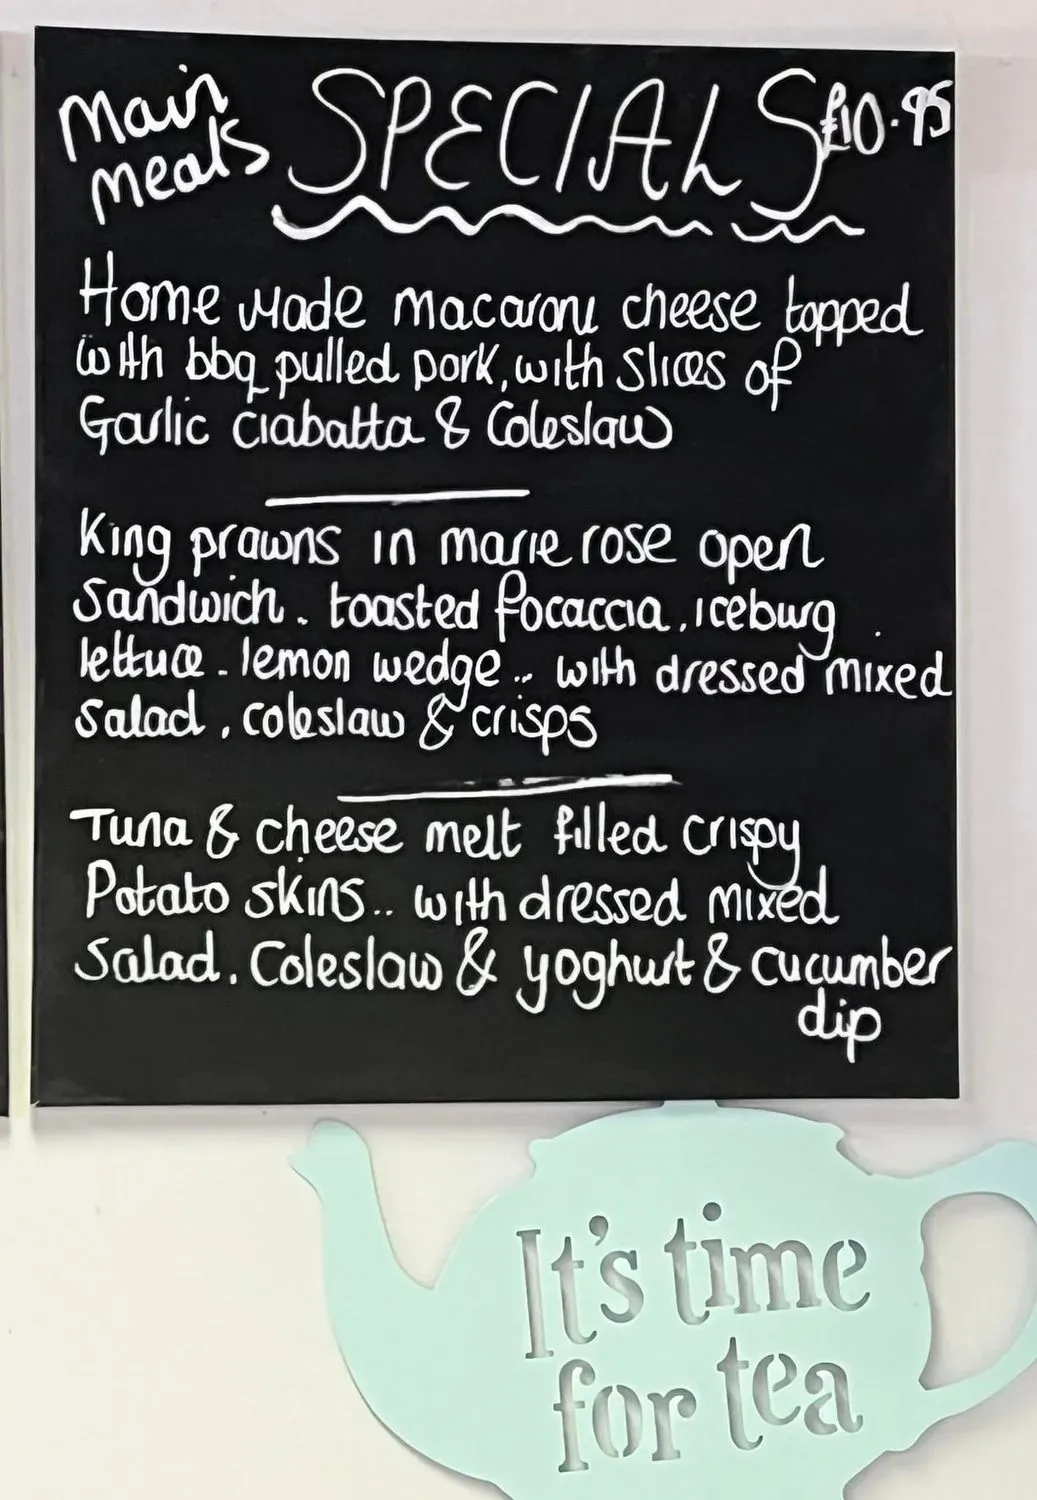 Main meals SPECIALS £10.95
Home Made macaroni cheese topped
with bbq pulled pork, with slices of
Garlic ciabatta & Coleslaw
King prawns in marie rose open
Sandwich. toasted focaccia, iceburg
lettuce - lemon wedge .. with dressed mixed
salad, coleslaw & crisps
Tuna & cheese melt filled crispy
Potato skins.. with dressed mixed
Salad, Coleslaw & yoghurt & cucumber
dip
It's time
for tea